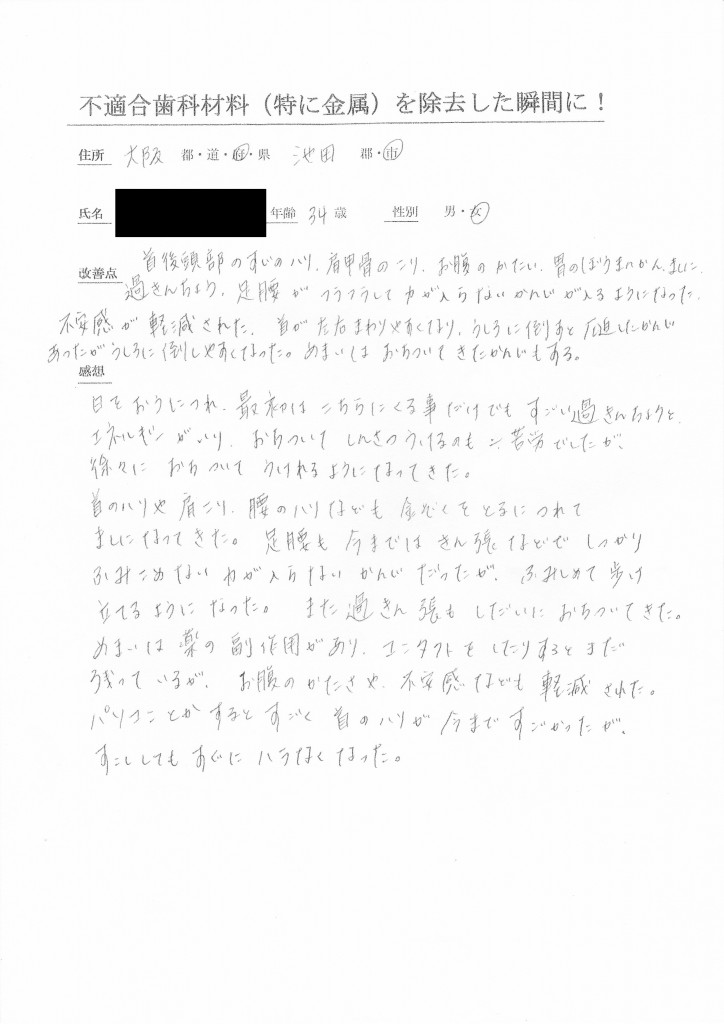 不適合歯科材料（特に金属）を除去した瞬間に！
住所 大阪 都・道・府・県 池田 郡・市
氏名 年齢 34 歳 性別 男・女
首後頭部のすじのハリ、肩甲骨のこり、お腹のかたい、胃のぼうまんかん、ましに、
改善点 過きんちょう、足腰がフラフラして力が入らないかんじが入るようになった、
不安感が軽減された、首が左右まわりやすくなり、うしろに倒すと圧迫したかんじ
あったがうしろに倒しやすくなった。めまいはおちついてきたかんじもする。
感想
日をおうにつれ、最初はこちらにくる事だけでもすごい過きんちょうと、
エネルギーがいり、おちついてしんさつうけるのも一苦労でしたが、
徐々におちついてうけれるようになってきた。
首のハリや肩こり、腰のハリなども金ぞくをとるにつれて
ましになってきた。足腰も今まではきん張などでしっかり
ふみこめない力が入らないかんじだったが、ふみしめて歩け
立てるようになった。また過きん張もしだいにおちついてきた。
めまいは薬の副作用があり、コンタクトをしたりするとまだ
残っているが、お腹のかたさや、不安感なども軽減された。
パソコンとかするとすごく首のハリが今まですごかったが、
すこししてもすぐにハラなくなった。